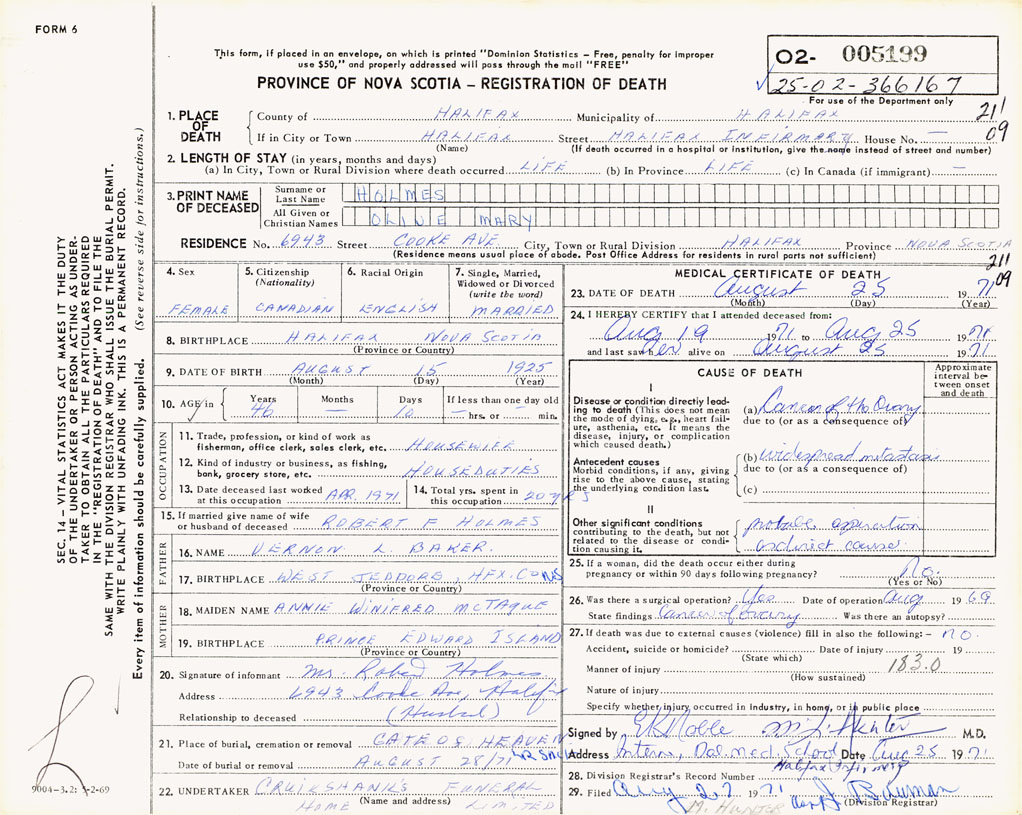 FORM 6
This form, if placed in an envelope, on which is printed "Dominion Statistics – Free, penalty for improper
use $50," and properly addressed will pass through the mail "FREE"
PROVINCE OF NOVA SCOTIA – REGISTRATION OF DEATH
02- 005199
25-02-366167
For use of the Department only
21' 09
1. PLACE OF DEATH
County of HALIFAX Municipality of HALIFAX
If in City or Town HALIFAX Street HALIFAX INFIRMARY House No. —
(Name) (If death occurred in a hospital or institution, give the name instead of street and number)
2. LENGTH OF STAY (in years, months and days)
(a) In City, Town or Rural Division where death occurred LIFE (b) In Province LIFE (c) In Canada (if immigrant) —
3. PRINT NAME OF DECEASED
Surname or Last Name HOLMES
All Given or Christian Names OLIVE MARY
RESIDENCE No. 6943 Street COOKE AVE. City, Town or Rural Division HALIFAX Province NOVA SCOTIA
(Residence means usual place of abode. Post Office Address for residents in rural parts not sufficient)
211 09
4. Sex
FEMALE
5. Citizenship (Nationality)
CANADIAN
6. Racial Origin
ENGLISH
7. Single, Married, Widowed or Divorced (write the word)
MARRIED
8. BIRTHPLACE HALIFAX NOVA SCOTIA
(Province or Country)
9. DATE OF BIRTH AUGUST 15 1925
(Month) (Day) (Year)
10. AGE in Years Months Days If less than one day old
46 — 10 — hrs. or — min.
OCCUPATION
11. Trade, profession, or kind of work as
fisherman, office clerk, sales clerk, etc. HOUSEWIFE
12. Kind of industry or business, as fishing,
bank, grocery store, etc. HOUSEDUTIES
13. Date deceased last worked at this occupation APR. 1971
14. Total yrs. spent in this occupation 20 YRS
15. If married give name of wife
or husband of deceased ROBERT F HOLMES
FATHER
16. NAME VERNON L. BAKER.
17. BIRTHPLACE WEST JEDDORE, HFX. CO NS
(Province or Country)
MOTHER
18. MAIDEN NAME ANNIE WINIFRED MCTAGUE
19. BIRTHPLACE PRINCE EDWARD ISLAND
(Province or Country)
20. Signature of informant Mr. Robert Holmes
Address 6943 Cooke Ave, Halifax
Relationship to deceased (Husband)
21. Place of burial, cremation or removal GATE OF HEAVEN
Date of burial or removal AUGUST 28/71
22. UNDERTAKER CRUIKSHANK'S FUNERAL
HOME LIMITED
(Name and address)
MEDICAL CERTIFICATE OF DEATH
23. DATE OF DEATH August 25 1971
(Month) (Day) (Year)
24. I HEREBY CERTIFY that I attended deceased from:
Aug 19 1971 to Aug 25 1971
and last saw her alive on August 25 1971
CAUSE OF DEATH
Approximate interval between onset and death
I
Disease or condition directly leading to death (This does not mean the mode of dying, e.g., heart failure, asthenia, etc. It means the disease, injury, or complication which caused death.)
(a) Cancer of the Ovary
due to (or as a consequence of)
Antecedent causes
Morbid conditions, if any, giving rise to the above cause, stating the underlying condition last.
(b) widespread metastasis
due to (or as a consequence of)
(c)
II
Other significant conditions contributing to the death, but not related to the disease or condition causing it.
probable aspiration
as direct cause
25. If a woman, did the death occur either during
pregnancy or within 90 days following pregnancy? No.
(Yes or No)
26. Was there a surgical operation? Yes Date of operation Aug 1969
State findings Cancer of ovary Was there an autopsy?
27. If death was due to external causes (violence) fill in also the following: – no.
Accident, suicide or homicide? Date of injury 19
(State which)
Manner of injury 183.0
(How sustained)
Nature of injury
Specify whether injury occurred in industry, in home, or in public place
Signed by M.D.
Address Intern, Dal Med School Date Aug 25 1971
28. Division Registrar's Record Number
29. Filed Aug 27 1971
(Division Registrar)
M. HUNTER
SEC. 14 – VITAL STATISTICS ACT MAKES IT THE DUTY
OF THE UNDERTAKER OR PERSON ACTING AS UNDER-
TAKER TO OBTAIN ALL THE PARTICULARS REQUIRED
IN THE "REGISTRATION OF DEATH" AND TO FILE THE
SAME WITH THE DIVISION REGISTRAR WHO SHALL ISSUE THE BURIAL PERMIT.
WRITE PLAINLY WITH UNFADING INK. THIS IS A PERMANENT RECORD.
Every item of information should be carefully supplied. (See reverse side for instructions.)
9004-3.2: 5-2-69